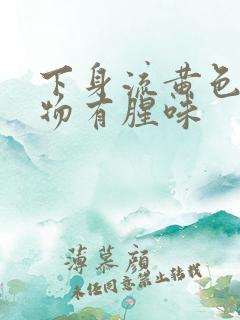 下身流黄色
物有腥味
薄慕颜
未经同意禁止转载